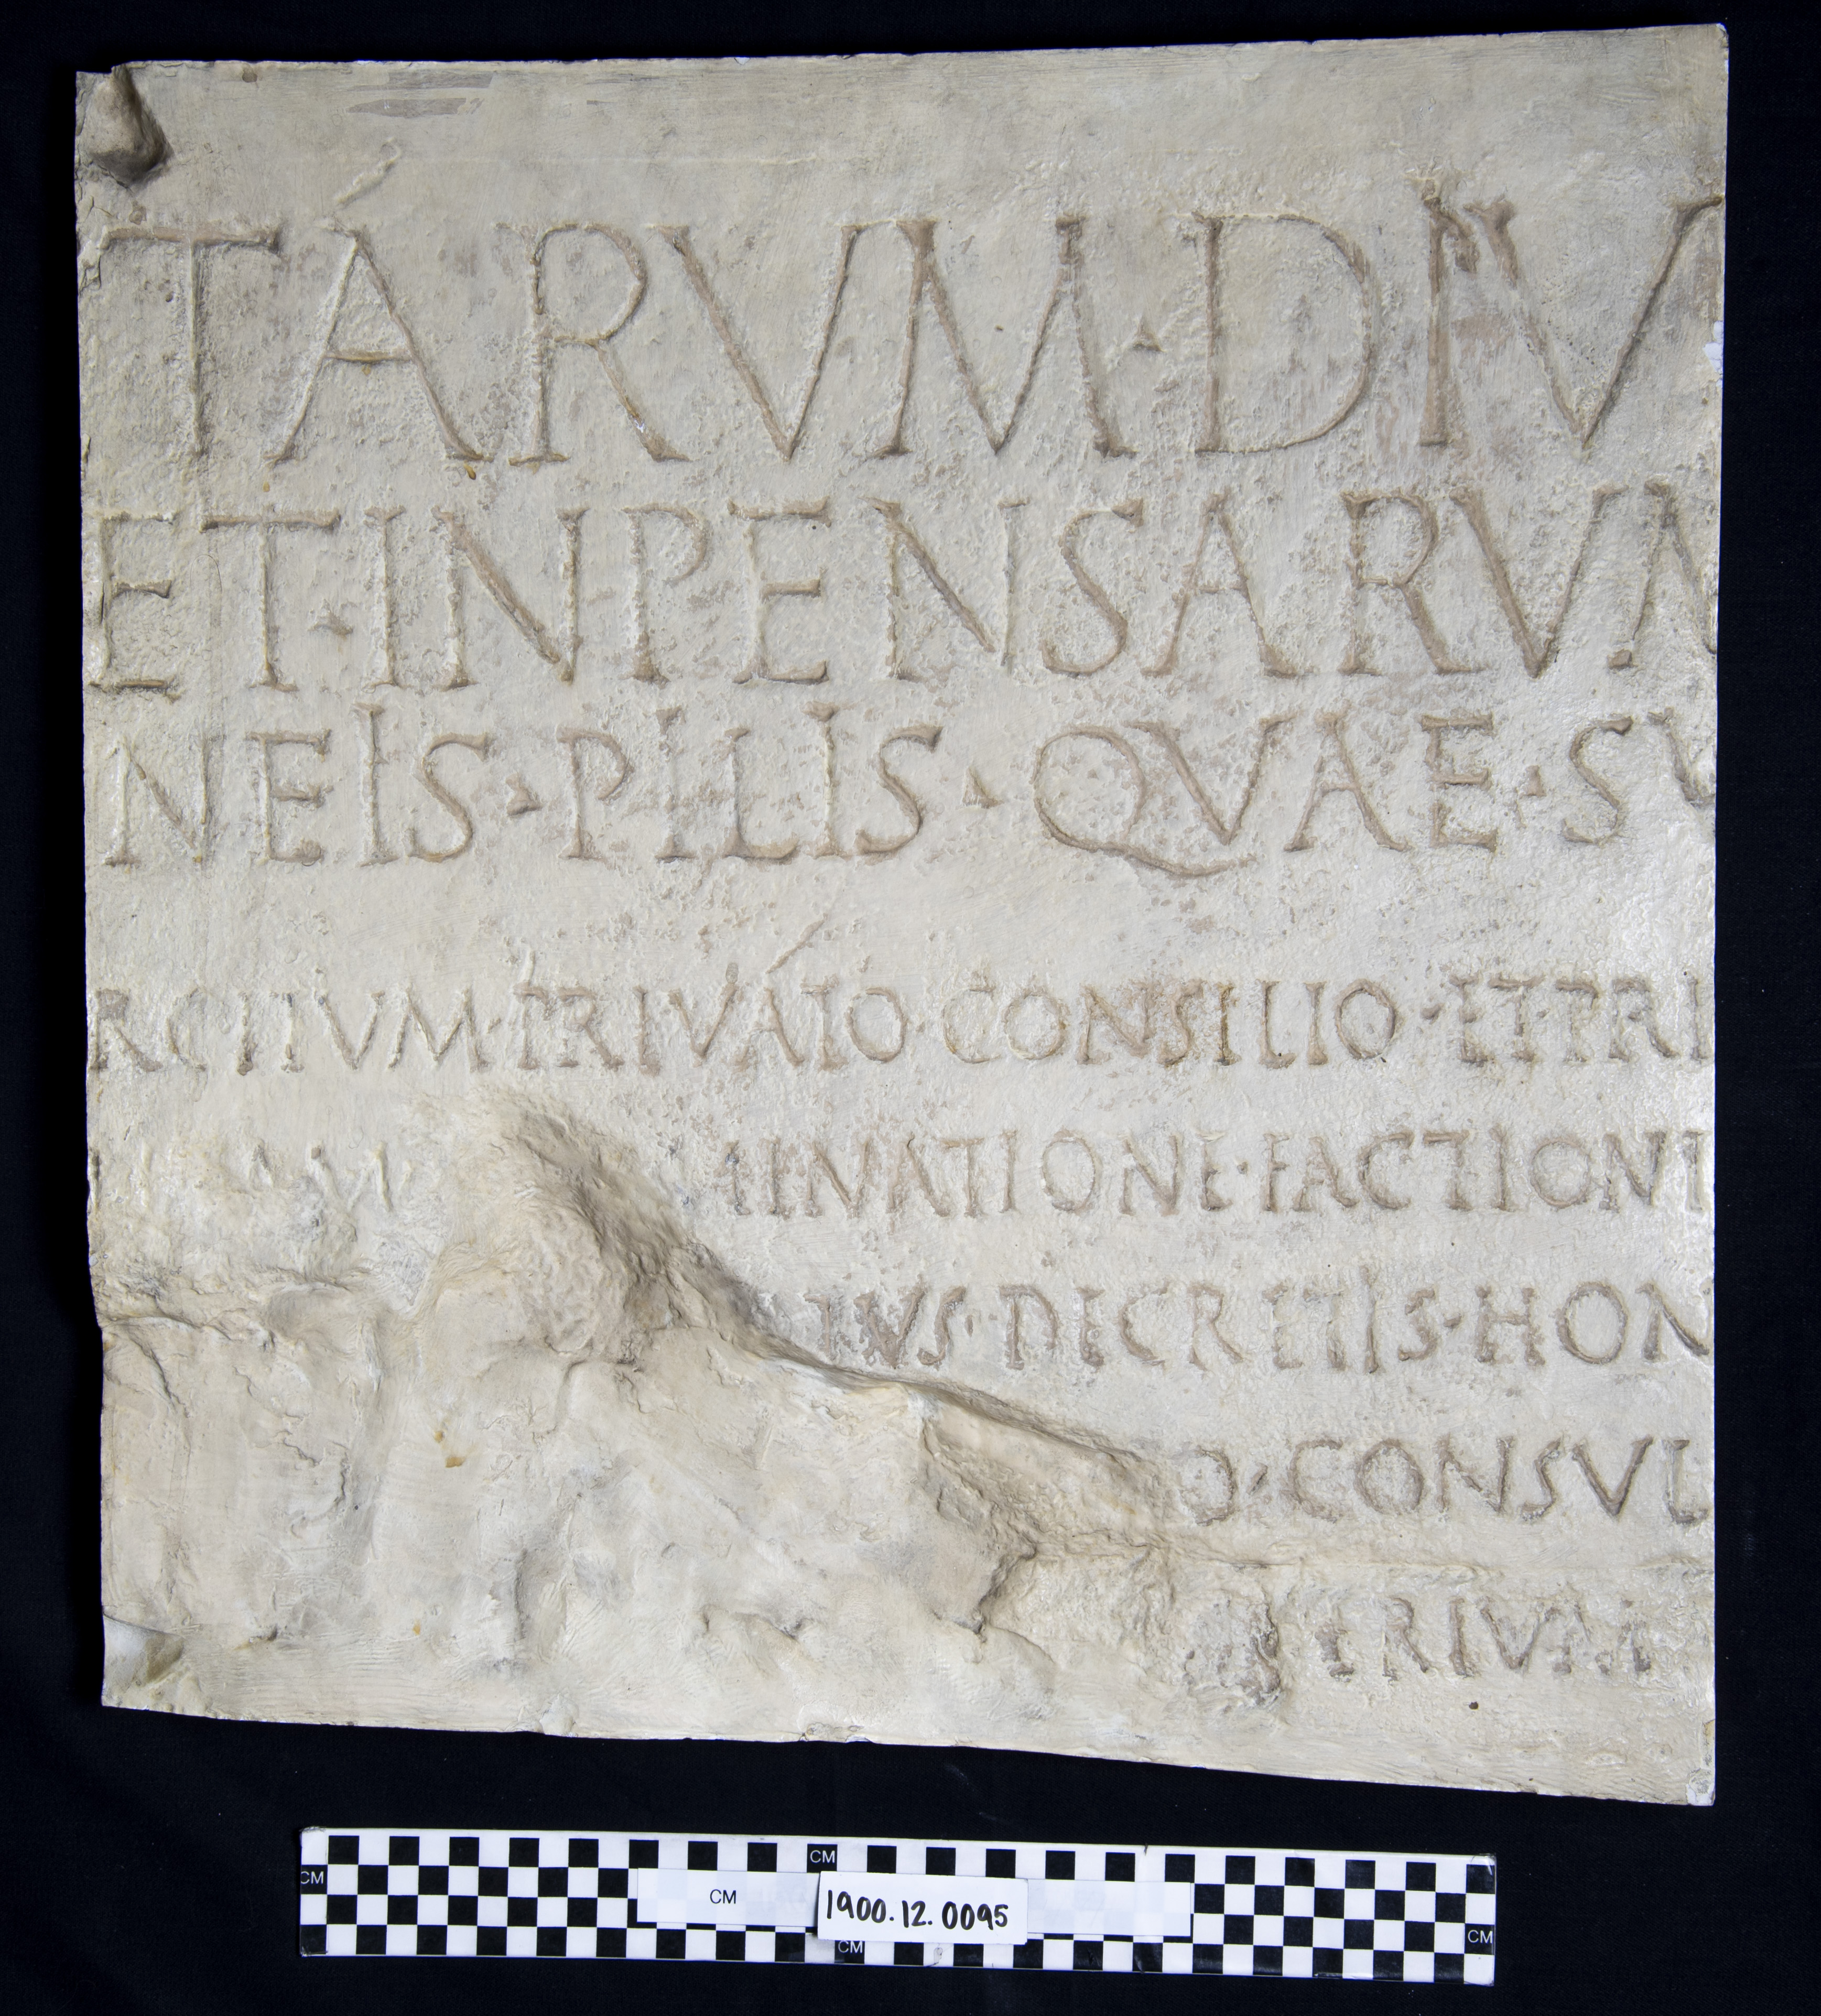 TÁRVM · DIV
ET · INPENSARVM
NEIS · PILIS · QVAE · SV
RCITVM · PRIVÁTO · CONSILIO · ET · PRI
MINATIONE · FACTIONI
IVS · DECRETIS · HON
O · CONSVL
TRIVM
CM
CM
CM
1900.12.0095
CM
CM